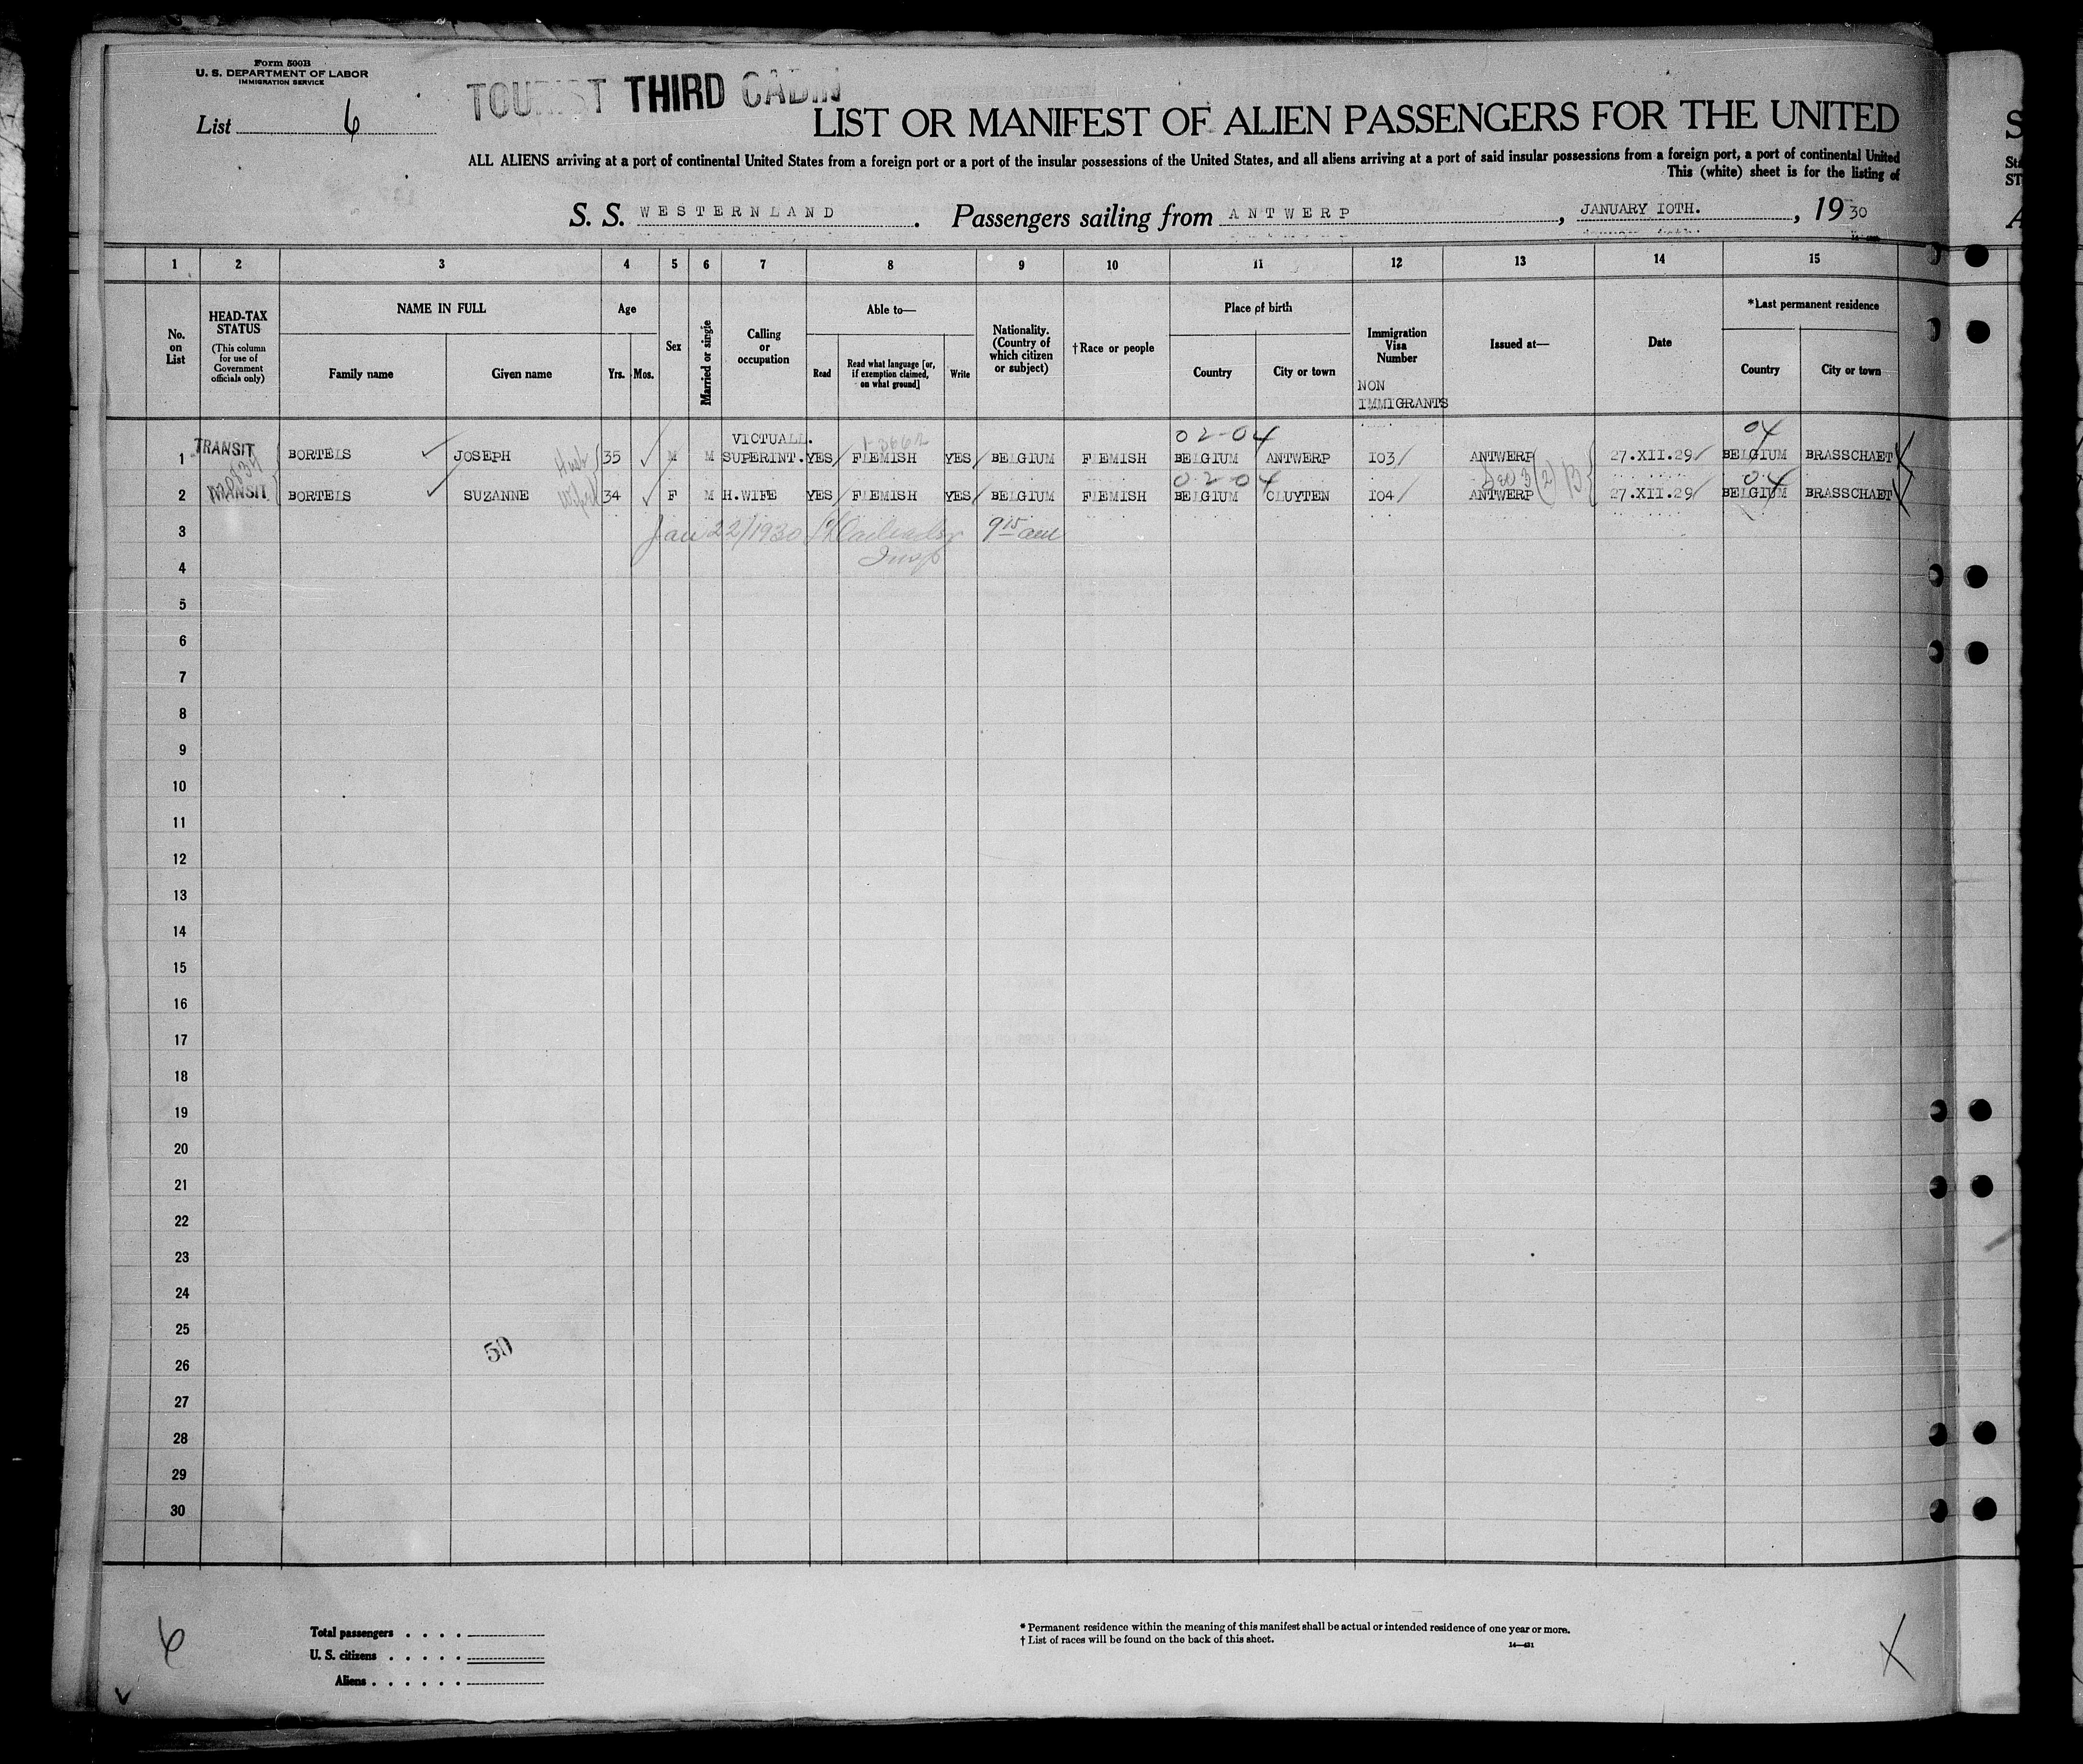 Form 500B
U. S. DEPARTMENT OF LABOR
IMMIGRATION SERVICE
TOURIST THIRD CABIN
List 6
LIST OR MANIFEST OF ALIEN PASSENGERS FOR THE UNITED
ALL ALIENS arriving at a port of continental United States from a foreign port or a port of the insular possessions of the United States, and all aliens arriving at a port of said insular possessions from a foreign port, a port of continental United
This (white) sheet is for the listing of
S. S. WESTERNLAND. Passengers sailing from ANTWERP, JANUARY 10TH., 1930
1 2 3 4 5 6 7 8 9 10 11 12 13 14 15
No. on List
HEAD-TAX STATUS
(This column for use of Government officials only)
NAME IN FULL
Family name
Given name
Age
Yrs.
Mos.
Sex
Married or single
Calling or occupation
Able to—
Read
Read what language [or, if exemption claimed, on what ground]
Write
Nationality. (Country of which citizen or subject)
†Race or people
Place of birth
Country
City or town
Immigration Visa Number
NON IMMIGRANTS
Issued at—
Date
*Last permanent residence
Country
City or town
VICTUALL. 02-04 04
1 TRANSIT BORTELS JOSEPH Husb 35 M M SUPERINT. YES FLEMISH YES BELGIUM FLEMISH BELGIUM ANTWERP 103 ANTWERP 27.XII.29 BELGIUM BRASSCHAET
02-04 Sec 3(2)B 04
2 TRANSIT BORTELS SUZANNE Wife 34 F M H.WIFE YES FLEMISH YES BELGIUM FLEMISH BELGIUM CLUYTEN 104 ANTWERP 27.XII.29 BELGIUM BRASSCHAET
3 Jan 22/1930 9 15 am
Insp
4
5
6
7
8
9
10
11
12
13
14
15
16
17
18
19
20
21
22
23
24
25
50
26
27
28
29
30
6
Total passengers . . . .
U. S. citizens . . . . .
Aliens . . . . . .
* Permanent residence within the meaning of this manifest shall be actual or intended residence of one year or more.
† List of races will be found on the back of this sheet.
14—431
X